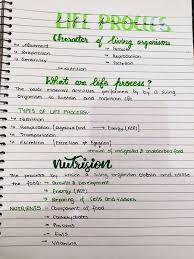 LIFE PROCESS
Character of living organisms
→ Movement → Growth
→ Respiration → Reproduction
→ Sensitivity → Excretion
→ nutrition
What are life process?
The basic essential activities performed by a living
organism to sustain and maintain life
TYPES OF LIFE PROCESS
→ Nutrition
→ Respiration → Energy (ATP)
→ Transportation
→ Excretion
nutrition
The process by which a living organism obtain and utilise
the food → Growth & development
→ Energy (ATP)
→ Repairing of cells and tissues
NUTRIENTS → Component of food
→ Carbohydrates
→ Proteins
→ Fats
→ Vitamins